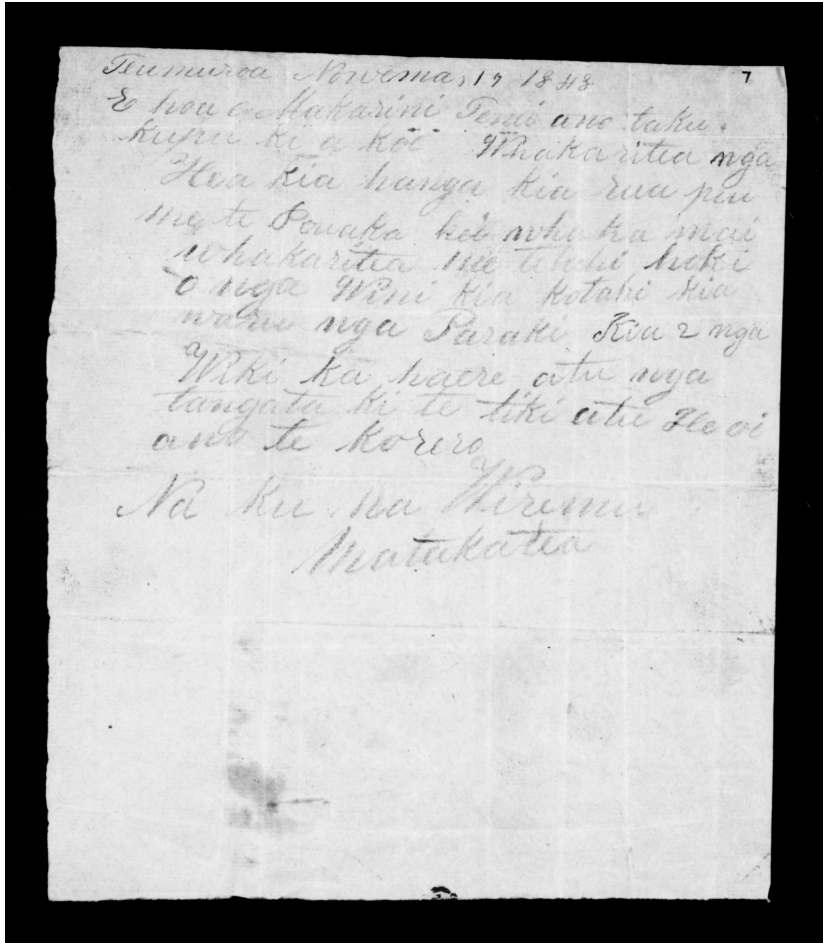 Teumuroa Nowema, 17 1848 7
E hoa e Makarini Tena ano taku
kupu ki a koe Whakaritea nga
Hea kia hanga kia rua pea
me te Pouaka kei whaka mai
whakaritea me hoki
o nga Wini kia kotahi kia
waru nga Paraki Kia 2 nga
Wiki ka haere atu nga
tangata ki te tiki atu Heoi
ano te korero
Na ku na Wiremu
Matakatea